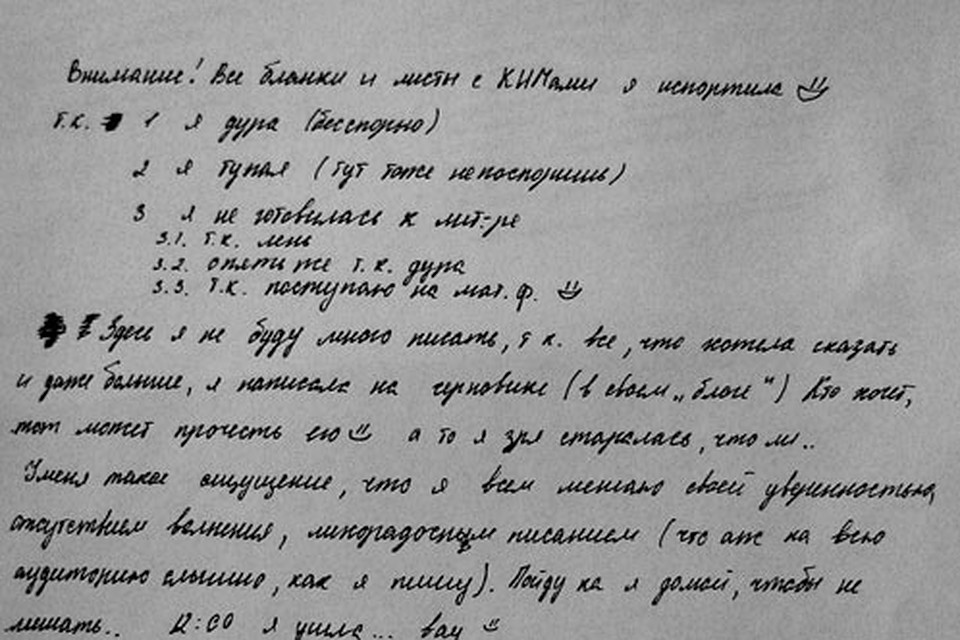 Внимание! Все бланки и листы с КИМами я испортила
т.к. 1 я дура (бесспорно)
2 я тупая (тут тоже непоспоришь)
3 я не готовилась к лит-ре
3.1. т.к. лень
3.2. опять же т.к. дура
3.3. т.к. поступаю на мат.ф.
Здесь я не буду много писать, т к. все, что хотела сказать
и даже больше, я написала на черновике (в своем „блоге“) Кто хочет,
тот может прочесть его а то я зря старалась, что ли..
Уменя такое ощущение, что я всем мешаю своей уверенностью,
отсутствием волнения, лихорадочным писанием (что аж на всю
аудиторию слышно, как я пишу). Пойду ка я домой, чтобы не
мешать.. 12:00 я ушла... вау